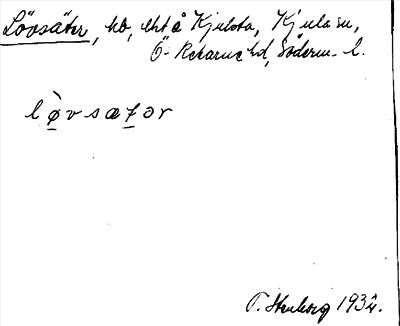 Lövsäter, hb, lht å Kjulsta, Kjula sn,
Ö. Rekarne hd, Söderm. l.
lø̀vsætər
1934.